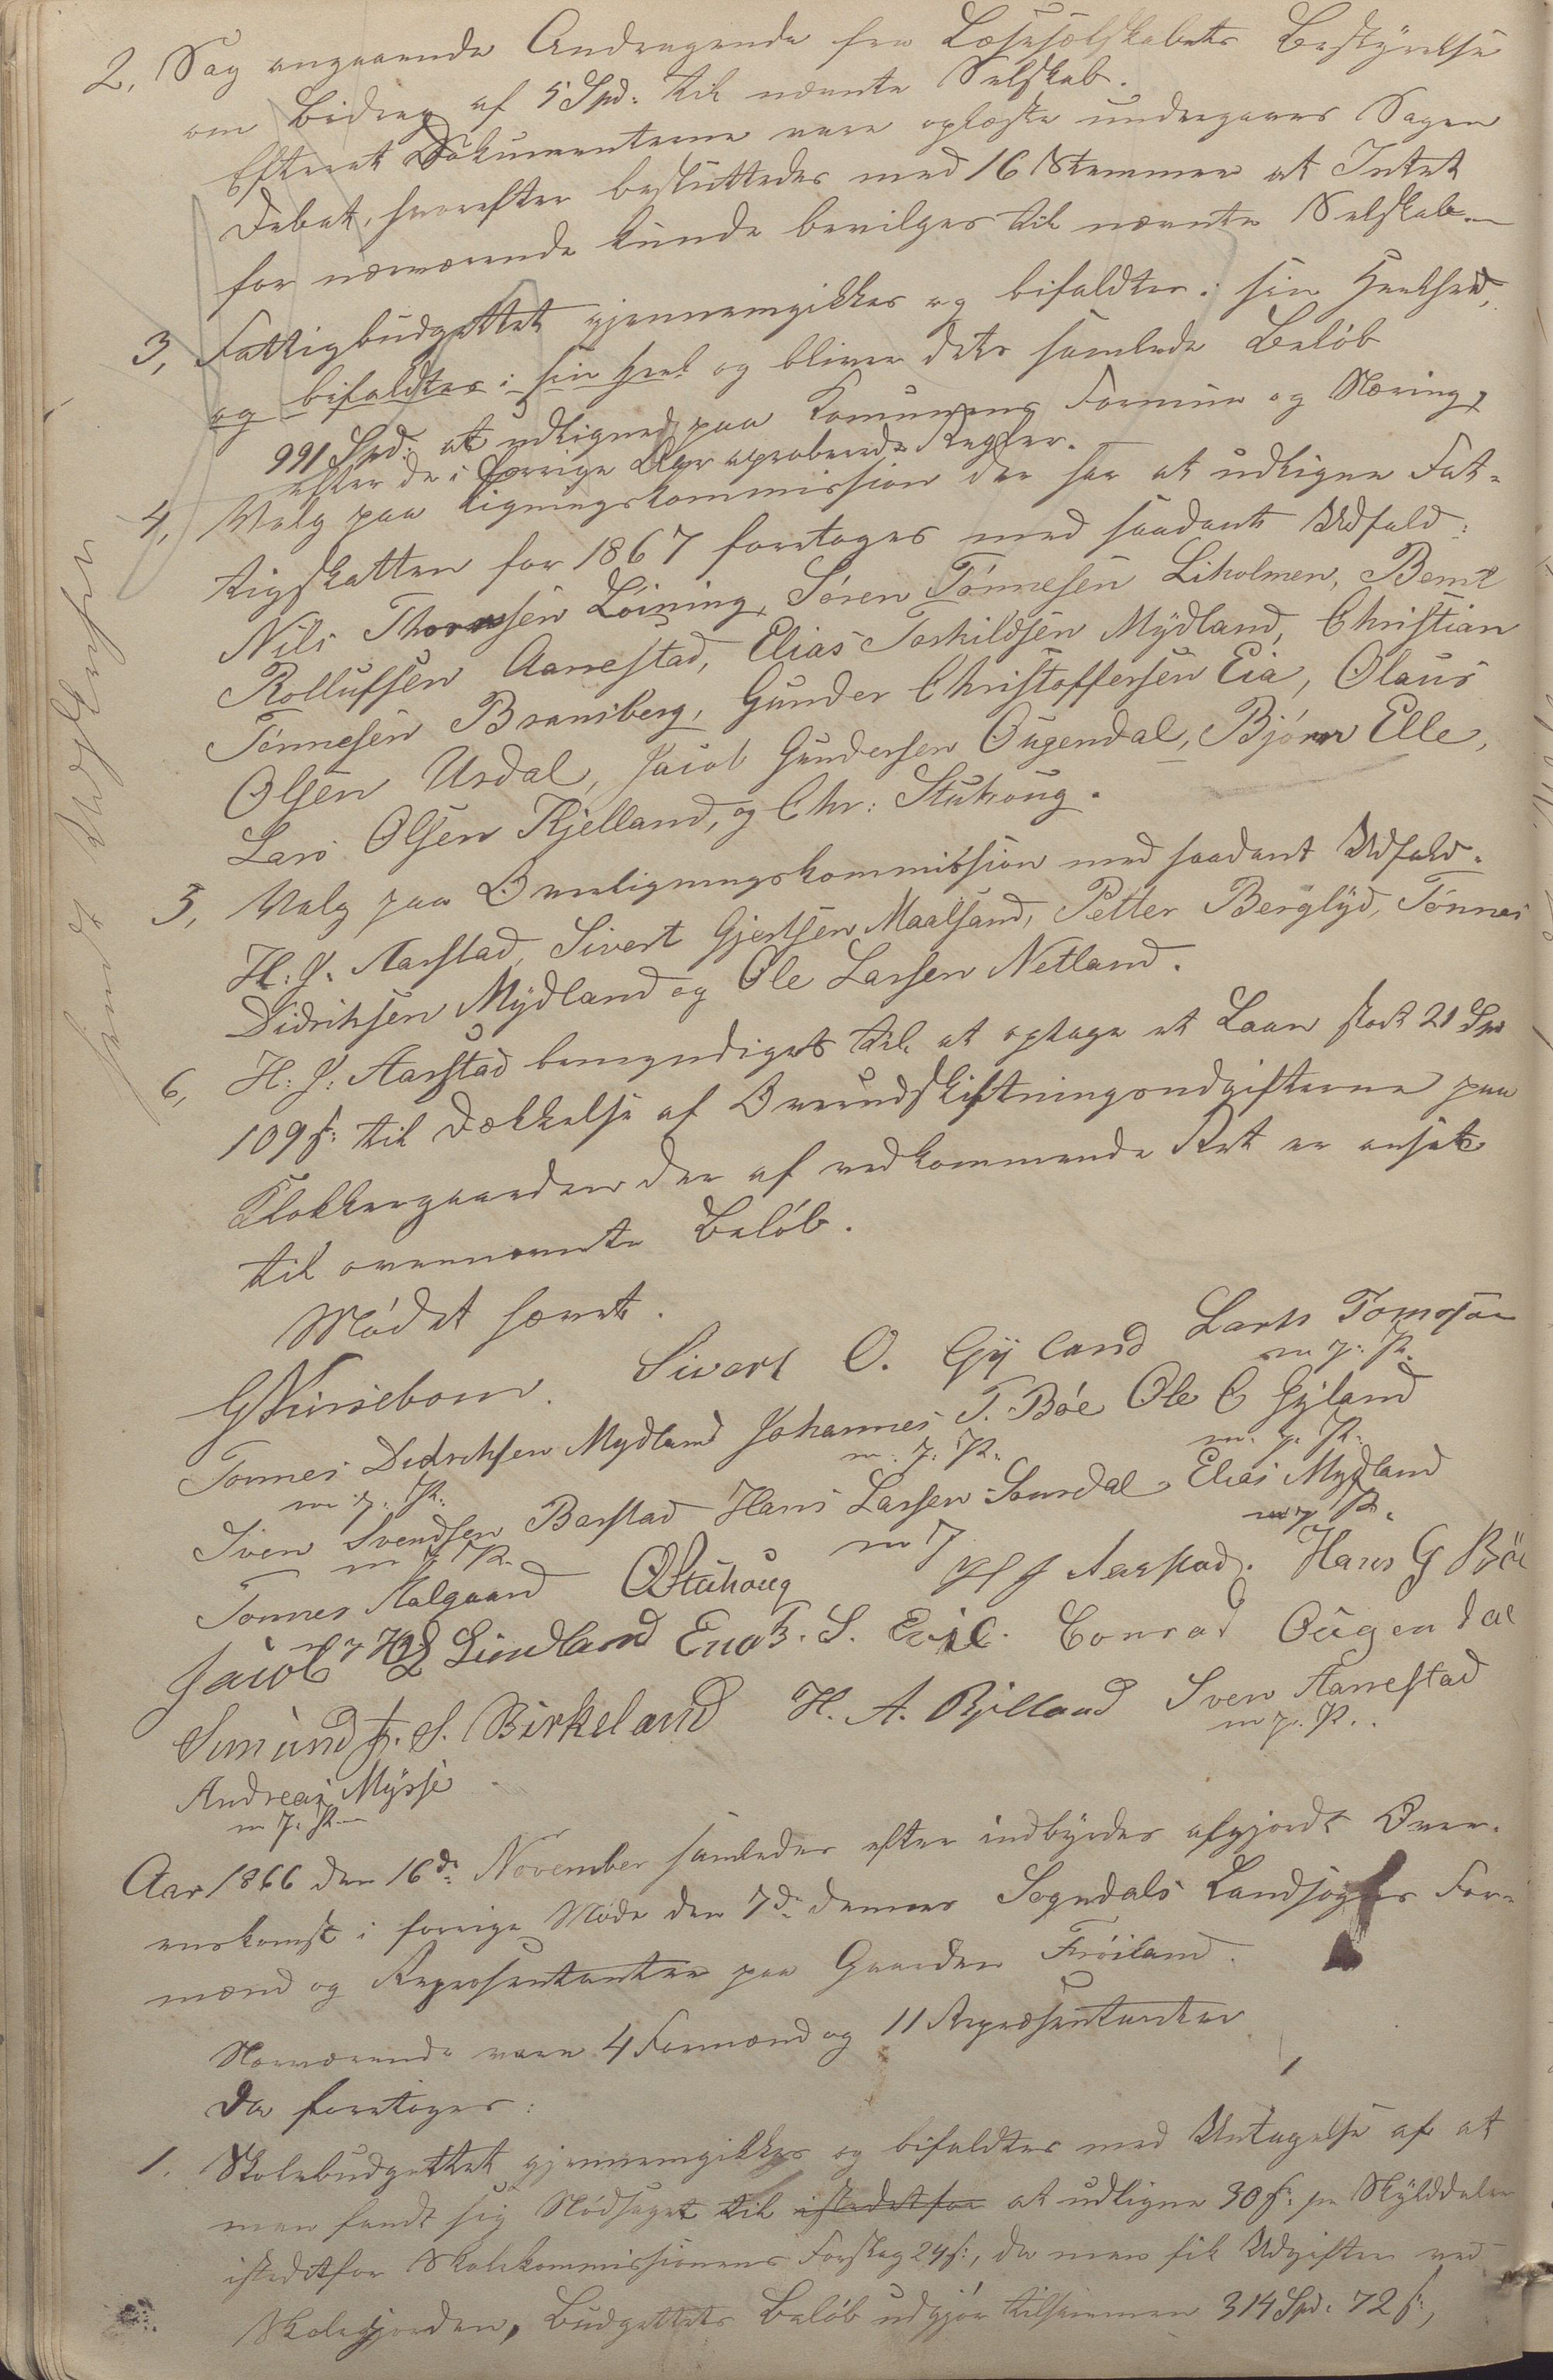 2, Sag angaaende Andragende fra Læseselskabets Bestyrelse
om Bidrag af 5 Spd: til nævnte Selskab.
Efterat Dokumenterne vare oplæste undergaves Sagen
Debat, hvorefter besluttedes med 16 Stemmer at Intet
for nærværende kunde bevilges til nævnte Selskab.
3, Fattigbudgettet gjennemgikkes og bifaldtes i sin Heelhed,
og bifaldtes i sin Heel og bliver dets samlede Beløb
991 Spd: at udligned paa Kommunens Formue og Næring,
efter de i forrige Aar aproberede Regler.
4, Valg paa Ligningskommission der har at udligne Fat-
tigskatten for 1867 foretoges med saadant Udfald:
Nils Thornsen Løining, Søren Tønnesen Liholmen, Bernt
Rollufsen Aanestad, Elias Torkildsen Mydland, Christian
Tønnesen Bransberg, Gunder Christoffersen Eia, Olaus
Olsen Urdal, Jacob Gundersen Ougendal, Bjørn Elle,
Lars Olsen Kjelland, og Chr: Stuhoug.
5, Valg paa Overligningskommission med saadant Udfald.
H: J. Aarstad, Sivert Gjertsen Maalsand, Petter Berglyd, Tønnes
Didriksen Mydland og Ole Larsen Netland.
6, H: J: Aarstad bemyndiges til at optage et Laan stort 21 Spd
109 s: til Dækkelse af Overudskiftningsudgifterne paa
Klokkergaarden der af vedkommende Ret er ansat
til ovennævnte Beløb.
Mødet hævet.
G Kirsebom. Sivert O. Gyland Lars Tomassen
m. p. P.
Tønnes Didriksen Mydland Johannes T. Bøe Ole O Gyland
m. p. P. m. p. P. m. p. P.
Sven Svendsen Barstad Hans Larsen Ørsdal Elias Mydland
m p P. m p m p P.
Tønnes Aalgaard O Stuhoug H J Aarstad. Hans G Bøe
Jacob L Lindland Enok. S. Eeie. Conrad Ougendal
Simund J. S. Birkeland H. A. Kjelland Sven Aanestad
m p. P.
Andreas Mysse
m p. P.
Aar 1866 den 16de November samledes efter indbyrdes afgjordt Over-
enskomst i forrige Møde den 7de dennes Sogndals Landsogns For-
mænd og Repræsentanter paa Gaarden Frøiland.
Nærværende vare 4 Formænd og 11 Repræsentanter
Da foretoges:
1. Skolebudgettet gjennemgikkes og bifaldtes med Untagelse af at
man fandt sig Nødsaget til istedetfor at udligne 30 s: pr Skylddaler
istedetfor Skolekommissionens Forslag 24 s:, da man fik Udgifter ved
Skolejorden, Budgettets Beløb udgjør tilsammen 314 Spd: 72 s:,